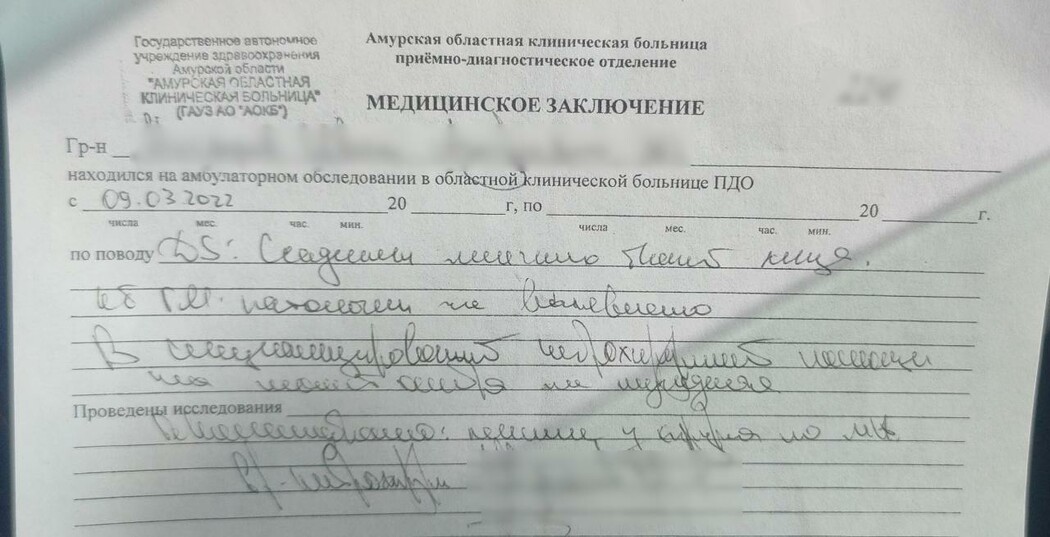 Государственное автономное
учреждение здравоохранения
Амурской области
"АМУРСКАЯ ОБЛАСТНАЯ
КЛИНИЧЕСКАЯ БОЛЬНИЦА"
(ГАУЗ АО "АОКБ")
Амурская областная клиническая больница
приёмно-диагностическое отделение
МЕДИЦИНСКОЕ ЗАКЛЮЧЕНИЕ
Гр-н
находился на амбулаторном обследовании в областной клинической больнице ПДО
с 09.03.2022 20 г, по 20 г.
числа мес. час. мин. числа мес. час. мин.
по поводу DS: Ссадины мягких лица.
патологии не выявлено
В специализированной нейрохирургической помощи
на не нуждается
Проведены исследования
Рекомендовано: у хирурга по м/ж